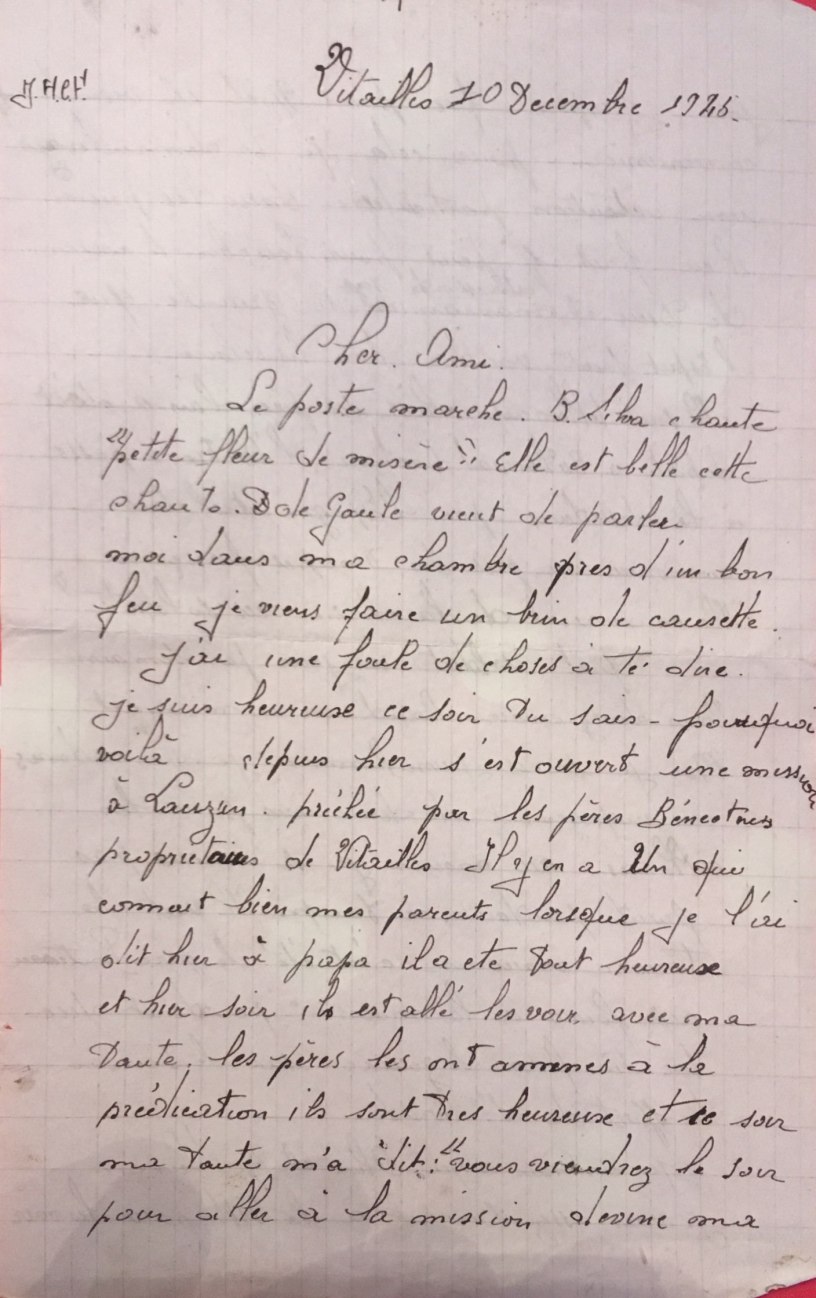 Vitailles 10 Decembre 1945.
Cher. Ami.
Le poste marche. B. Silva chante
"petite fleur de misère" Elle est belle cette
chante. D de Gaule vient de parler
moi dans ma chambre pres d'un bon
feu je viens faire un brin de causette.
J'ai une foule de choses à te dire.
je suis heureuse ce soir Tu sais - pourquoi
voilà depuis hier s'est ouvert une mission
à Lauzun. prêchée par les pères
proprietaires de Vitailles Il y en a Un qui
connait bien mes parents lorsque je l'ai
dit hier à papa il a ete tout heureuse
et hier soir ils est allé les voir avec ma
Tante. les pères les ont ammenes à la
prédication ils sont Tres heureuse et ce soir
ma tante m'a dit: "vous viendrez le soir
pour aller à la mission devine ma